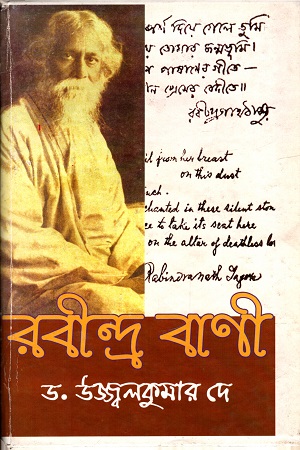 স্পর্শ দিয়ে গেলে তুমি
তোমার জন্মভূমি।
পাষাণের গীতে
প্রেমের বেদীতে॥
রবীন্দ্রনাথ ঠাকুর
from her breast
on this dust
chanted in these silent ston
to take its seat here
on the altar of deathless lov
Rabindranath Tagore
রবীন্দ্র বাণী
ড. উজ্জ্বলকুমার দে